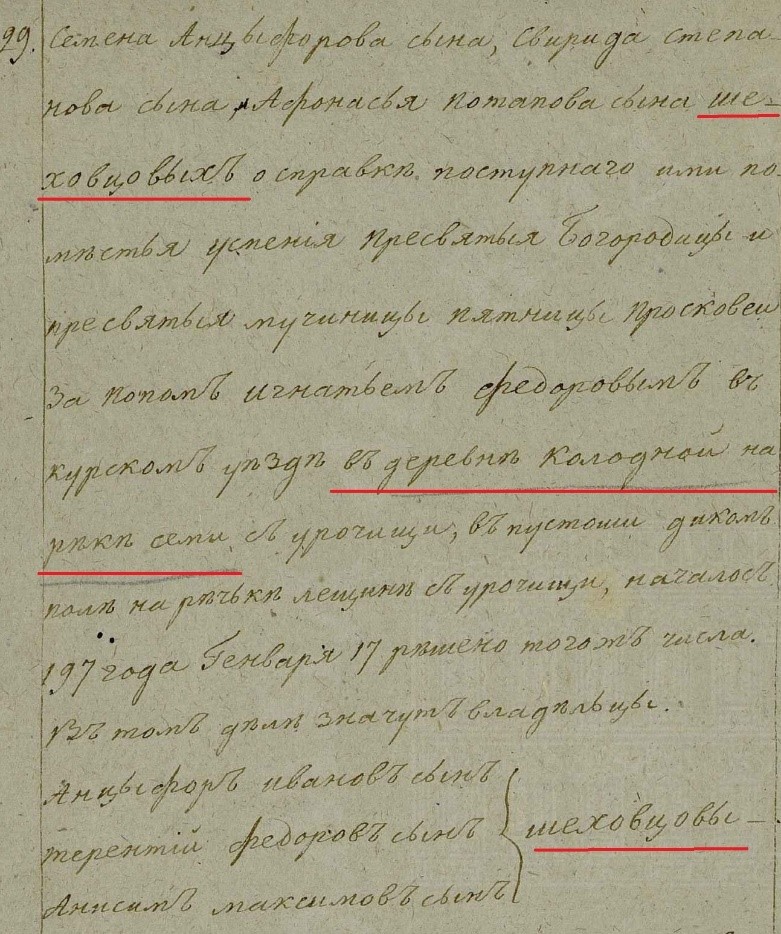 29. Семена Анцыфорова сына, Свирида степа-
нова сына, Афонасья потапова сына ше-
ховцовыхъ о справкѣ поступнаго ими по-
мѣстья успенія пресвятыя Богородицы и
пресвятыя мучиницы пятницы просковеи
За попомъ игнатьемъ федоровымъ въ
курскомъ уѣздѣ въ деревнѣ колодной на
рѣкѣ семи съ урочищи, въ пустоши дикомъ
полѣ на рѣчькѣ лещинѣ съ урочищи, началось
197 года Генваря 17 рѣшено тогожъ числа.
Въ томъ дѣлѣ значутъ владѣльцы.
Анцыфоръ ивановъ сынъ
терентій федоровъ сынъ } шеховцовы –
Анисимъ максимовъ сынъ